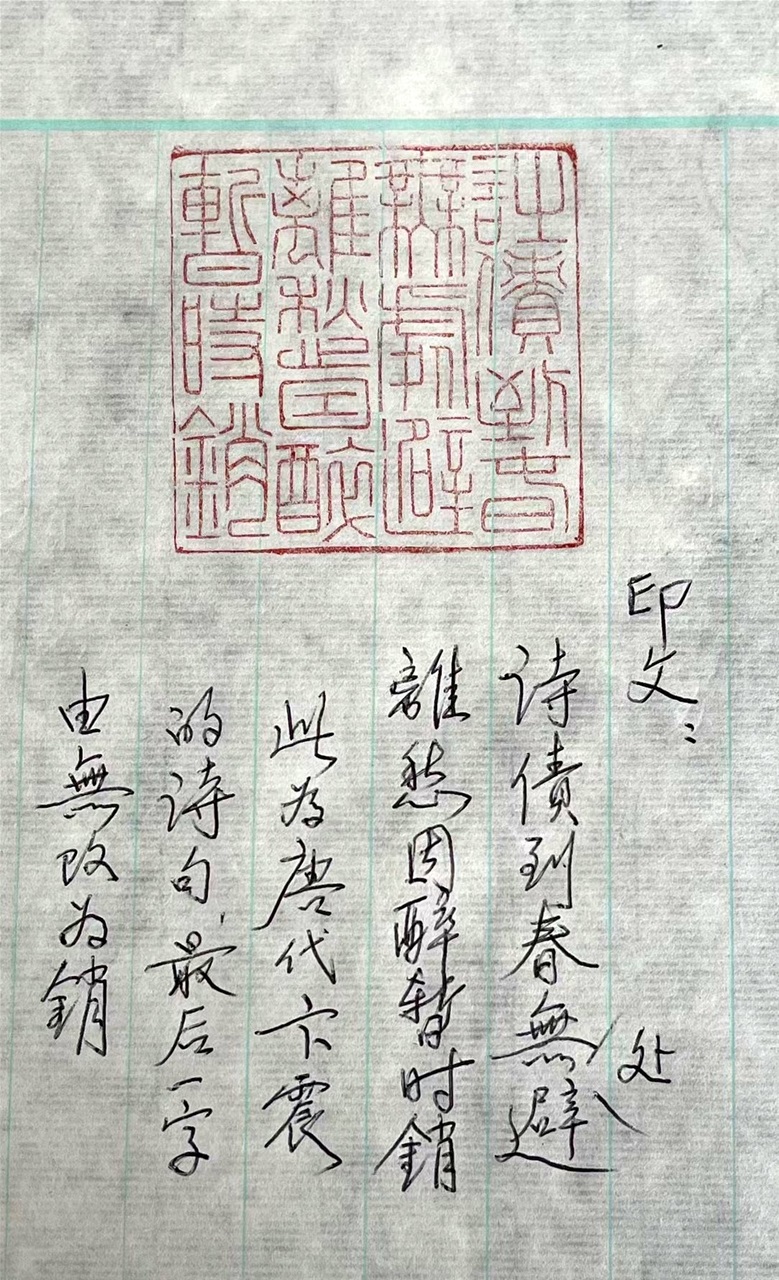 詩債到春
無處避
離愁因醉
暫時銷
印文：
诗债到春無处避
離愁因醉暂时銷
此为唐代卞震
的诗句，最后一字
由無改为銷